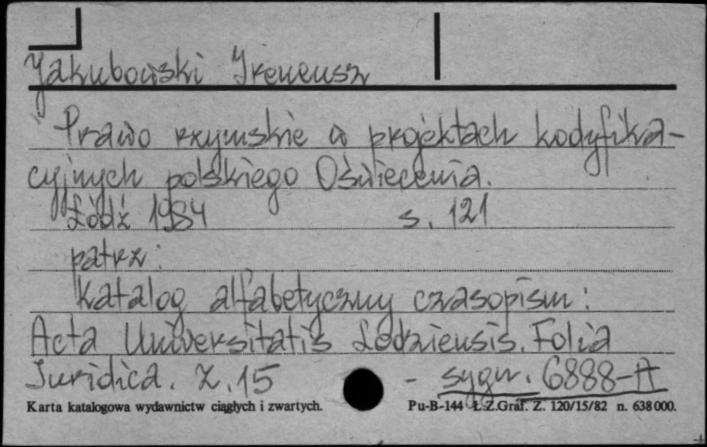 Jakubowski Ireneusz
Prawo rzymskie w projektach kodyfika-
cyjnych polskiego Oświecenia.
Łódź 1984 s. 121
patrz:
Katalog alfabetyczny czasopism:
Acta Universitatis Lodziensis. Folia
Juridica. Z. 15 - sygn. 6888-A
Karta katalogowa wydawnictw ciągłych i zwartych. Pu-B-144 Ł.Z.Graf. Z. 120/15/82 n. 638000.